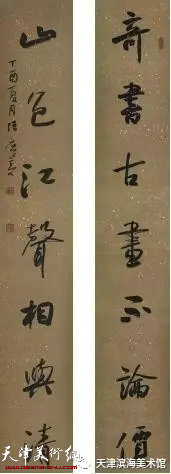 奇書古畫不論價
山色江聲相與清
丁酉夏月
天津美术网
天津滨海美术馆